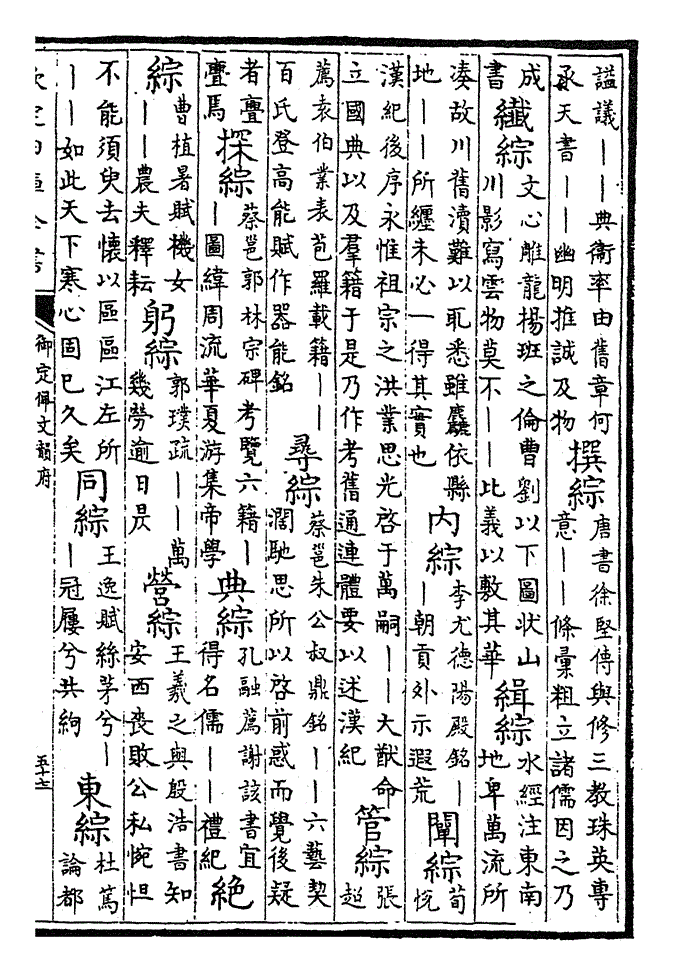 謚議｜｜典衞率由舊章何
承天書｜｜幽明推誠及物
撰綜
唐書徐堅傳與修三教珠英専
意｜｜條彚粗立諸儒因之乃
成
書
纖綜
文心雕龍楊班之倫曹劉以下圖状山
川影寫雲物莫不｜｜比義以敷其華
緝綜
水經注東南
地卑萬流所
凑故川舊瀆難以取悉雖麤依縣
地｜｜所纒未必一得其實也
内綜
李尤德陽殿銘｜
｜朝貢外示遐荒
闡綜
荀
悦
漢紀後序永惟祖宗之洪業思光啓于萬嗣｜｜大猷命
立國典以及羣籍于是乃作考舊通連體要以述漢紀
管綜
張
超
薦袁伯業表苞羅載籍｜｜
百氏登高能賦作器能銘
尋綜
蔡邕朱公叔鼎銘｜｜六藝契
濶馳思所以啓前惑而覺後疑
者亹
亹焉
探綜
蔡邕郭林宗碑考覽六籍｜
｜圖緯周流華夏游集帝學
典綜
孔融薦謝該書宜
得名儒｜｜禮紀
絶
綜
曹植暑賦機女
｜｜農夫釋耘
躬綜
郭璞疏｜｜萬
幾勞逾日昃
營綜
王羲之與殷浩書知
安西喪敗公私惋怛
不能須臾去懷以區區江左所
｜｜如此天下寒心固已久矣
同綜
王逸賦絲茅兮｜
｜冠屨兮共絇
東綜
杜篤
論都
欽定四庫全書
御定佩文韻府
五十七